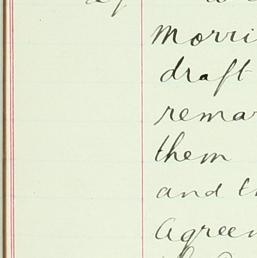 Morri
draft
remar
them
and t
Agreem